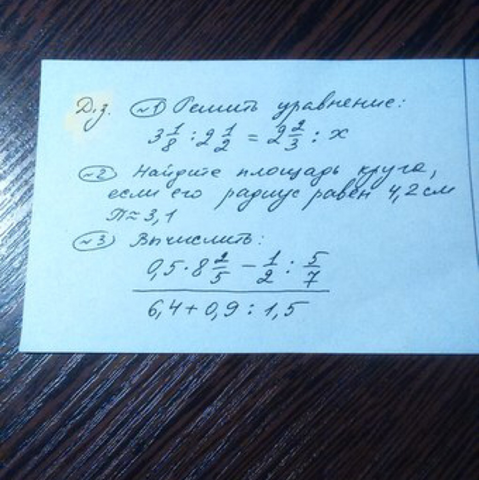 Д.з. №1 Решить уравнение:
3 1/8 : 2 1/2 = 2 2/3 : x
№2 Найдите площадь круга,
если его радиус равен 4,2 см
П ≈ 3,1
№3 Вычислить:
0,5 · 8 2/5 − 1/2 : 5/7
6,4 + 0,9 : 1,5